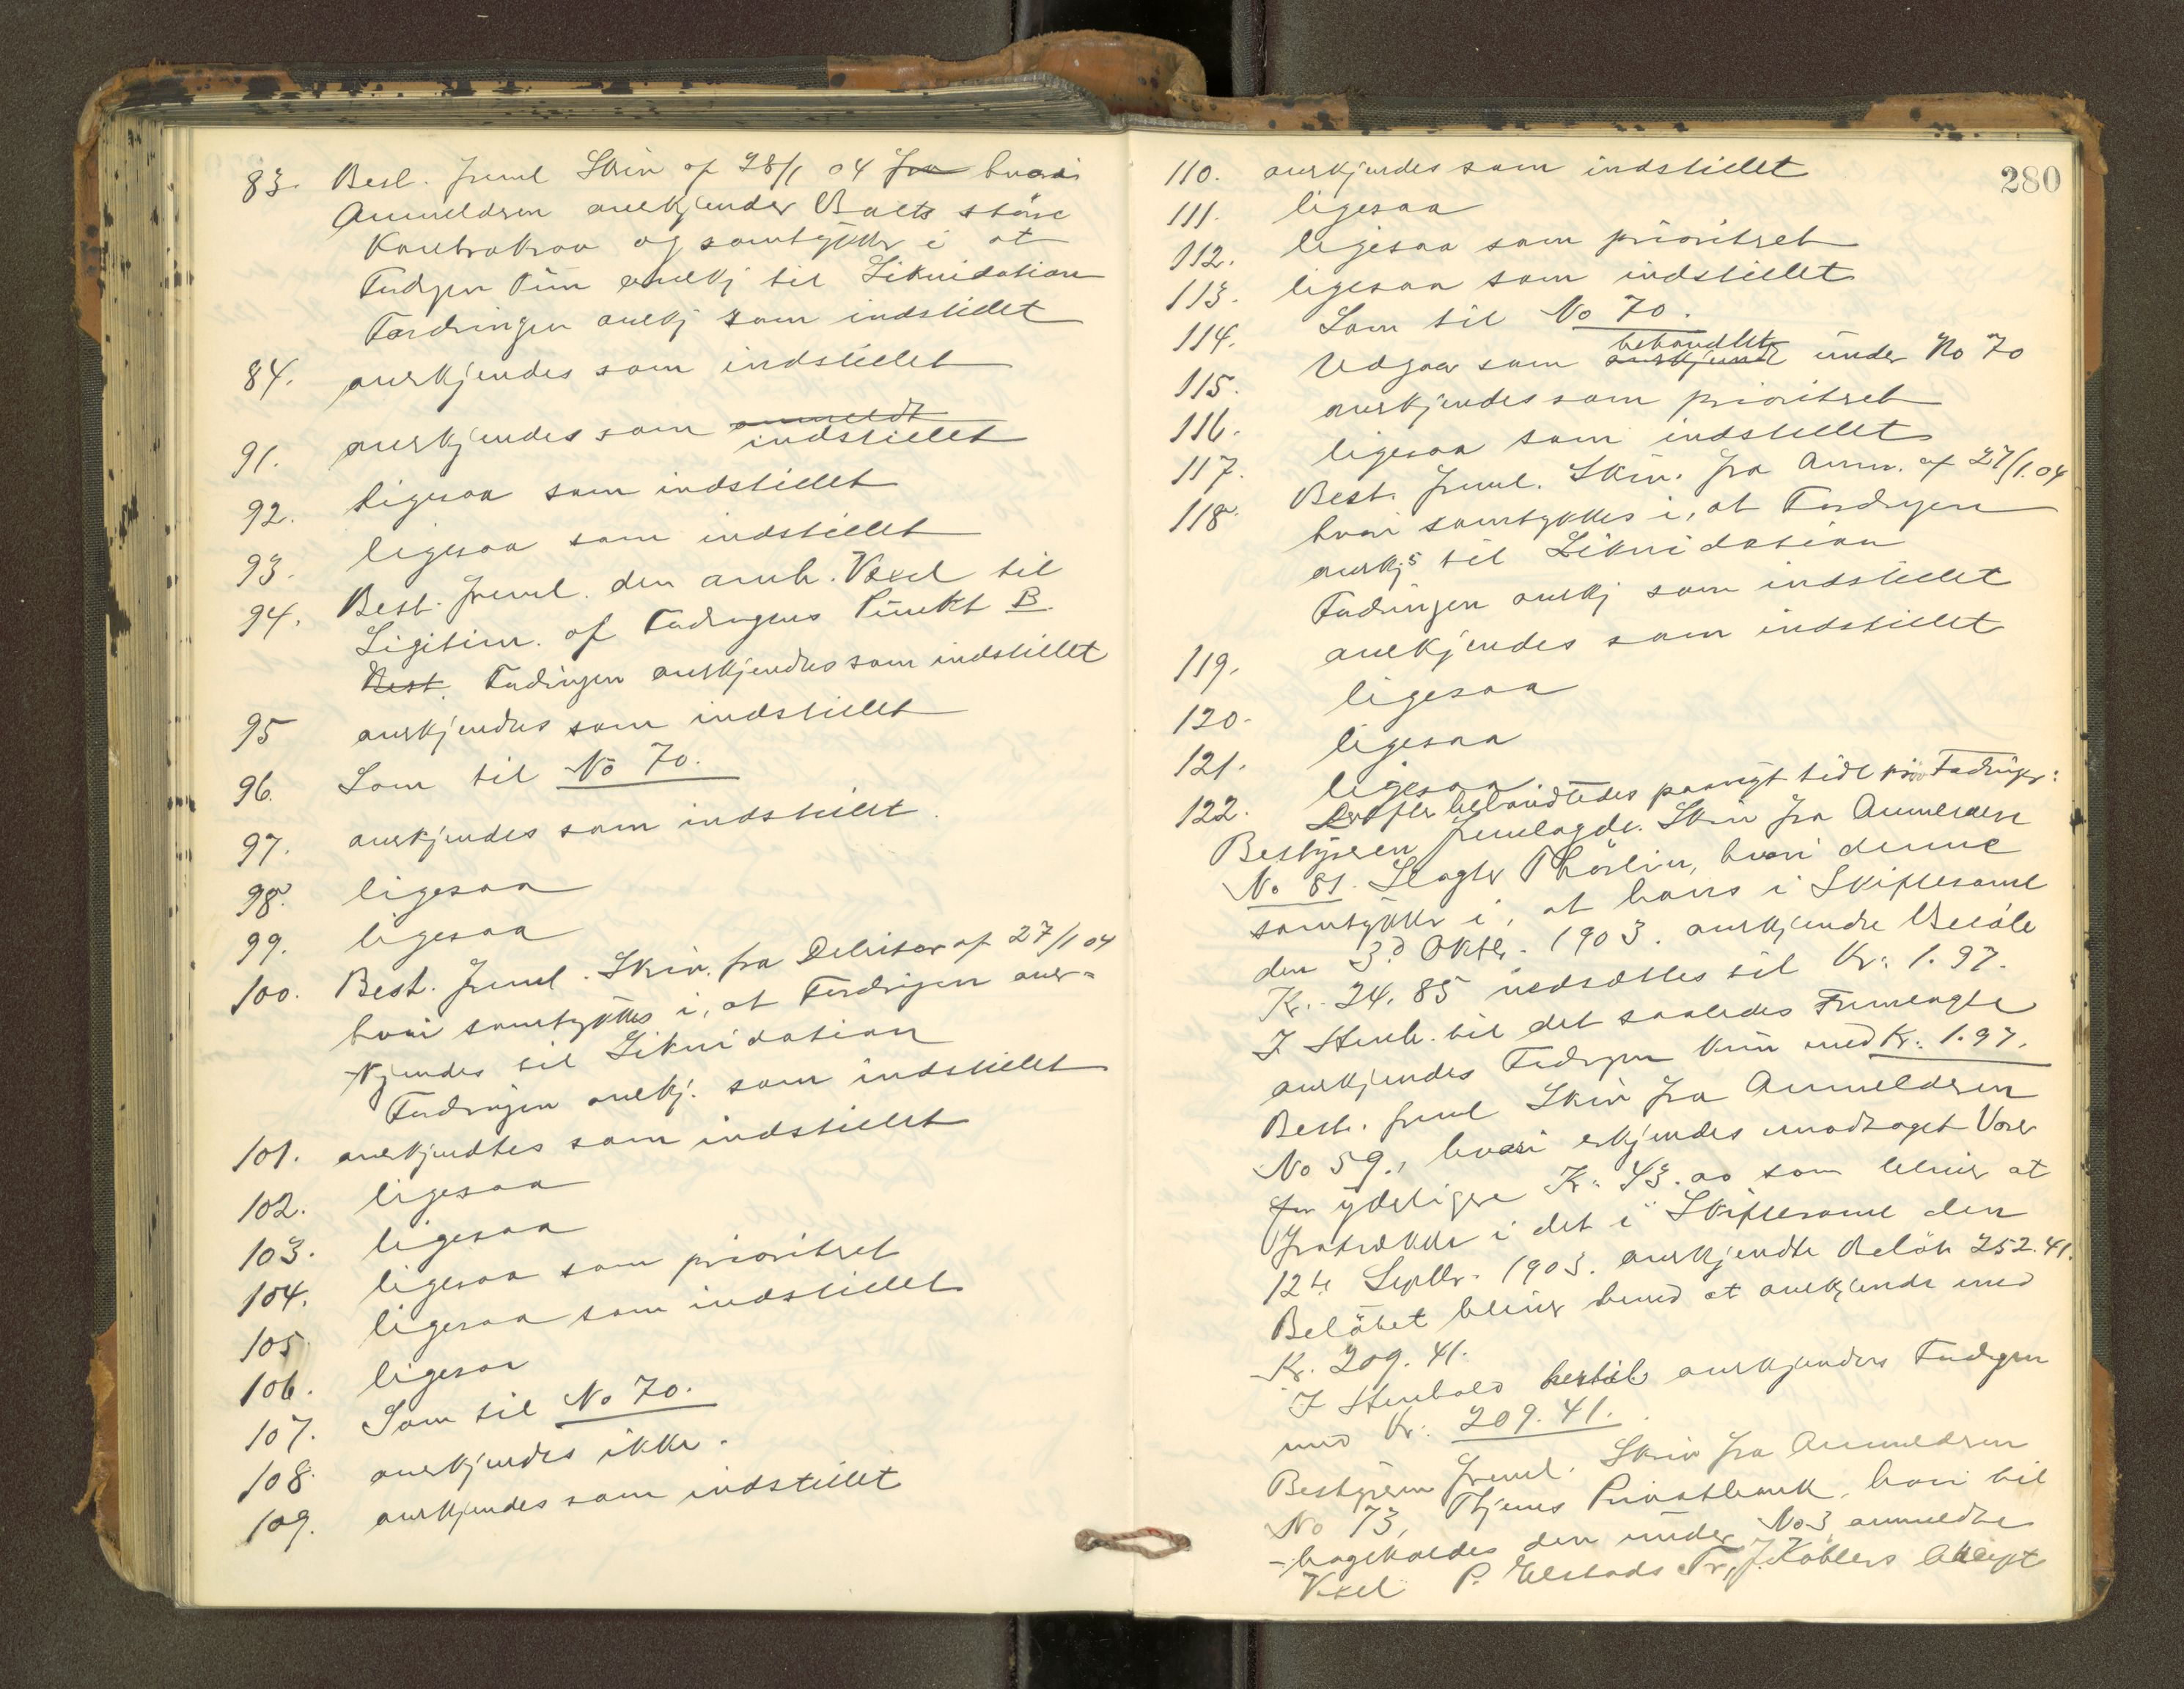 83. Best. freml Skriv af 28/1 04 fra hvori
Anmelderen anerkjender Boets större
Kontrakrav og samtykker i at
Fordrgen kun anerkj til Likvidation
Fordringen anerkj som indstillet
84. anerkjendes som indstillet
91. anerkjendes som anmeldt
indstillet
92. ligesaa som indstillet
93. ligesaa som indstillet
94. Best. freml. den anmh. Vexel til
Ligitim. af Fordringens Punkt B.
Best. Fordringen anerkjendes som indstillet
95 anerkjendes som indstillet
96. Som til No 70.
97. anerkjendes som indstillet.
98. ligesaa
99. ligesaa
100. Best. freml. Skriv. fra Debitor af 27/1 04
hvori samtykkes i, at Fordringen aner-
kjendes til Likvidation
Fordringen anerkj. som indstillet
101. anerkjendtes som indstillet
102. ligesaa
103. ligesaa
104. ligesaa som prioritret
105. ligesaa som indstillet
106. ligesaa
107. Som til No 70.
108. anerkjendes ikke.
109. anerkjendes som indstillet
280
110. anerkjendes som indstillet
111. ligesaa
112. ligesaa som prioritret
113. ligesaa som indstillet
114. Som til No 70.
behandlet
115. Udgaar som anerkjendt under No 70
116. anerkjendes som prioritret
117. ligesaa som indstillet
118. Best. freml. Skriv. fra Anm. af 27/1.04
hvori samtykkes i, at Fordrgen
anerkjs til Likvidation
Fordringen anerkj som indstillet
119. anerkjendes som indstillet
120. ligesaa
121. ligesaa
122. ligesaa
Derefter behandledes paanyt tidl. Fordringer:
Bestyreren fremlagde Skriv fra Anmelderen
No 81. Slagter Thörlin, hvori denne
samtykker i, at hans i Skiftesaml
den 3d Oktbr. 1903. anerkjendte Belöb
Kr. 24.85 nedsættes til Kr. 1.97.
I Henh. til det saaledes Fremlagte
anerkjendes Fordrgen kun med Kr. 1.97.
Best. freml Skriv fra Anmelderen
No 59., hvori erkjendes modtaget Varer
for yderligere Kr. 43.00 som bliver at
fratrække i det i Skiftesaml den
12te Septbr. 1903. anerkjendte Belöb 252.41.
Belöbet bliver hermed at anerkjende med
Kr. 209.41.
I Henhold hertil anerkjendes Fordrgen
med Kr. 209.41.
Bestyreren freml. Skriv fra Anmelderen
No 73, Privatbank, hvori til-
-bageholdes den under No 3 anmeldte
Vexel P. Elstads Tr, J. Köhlers Accept